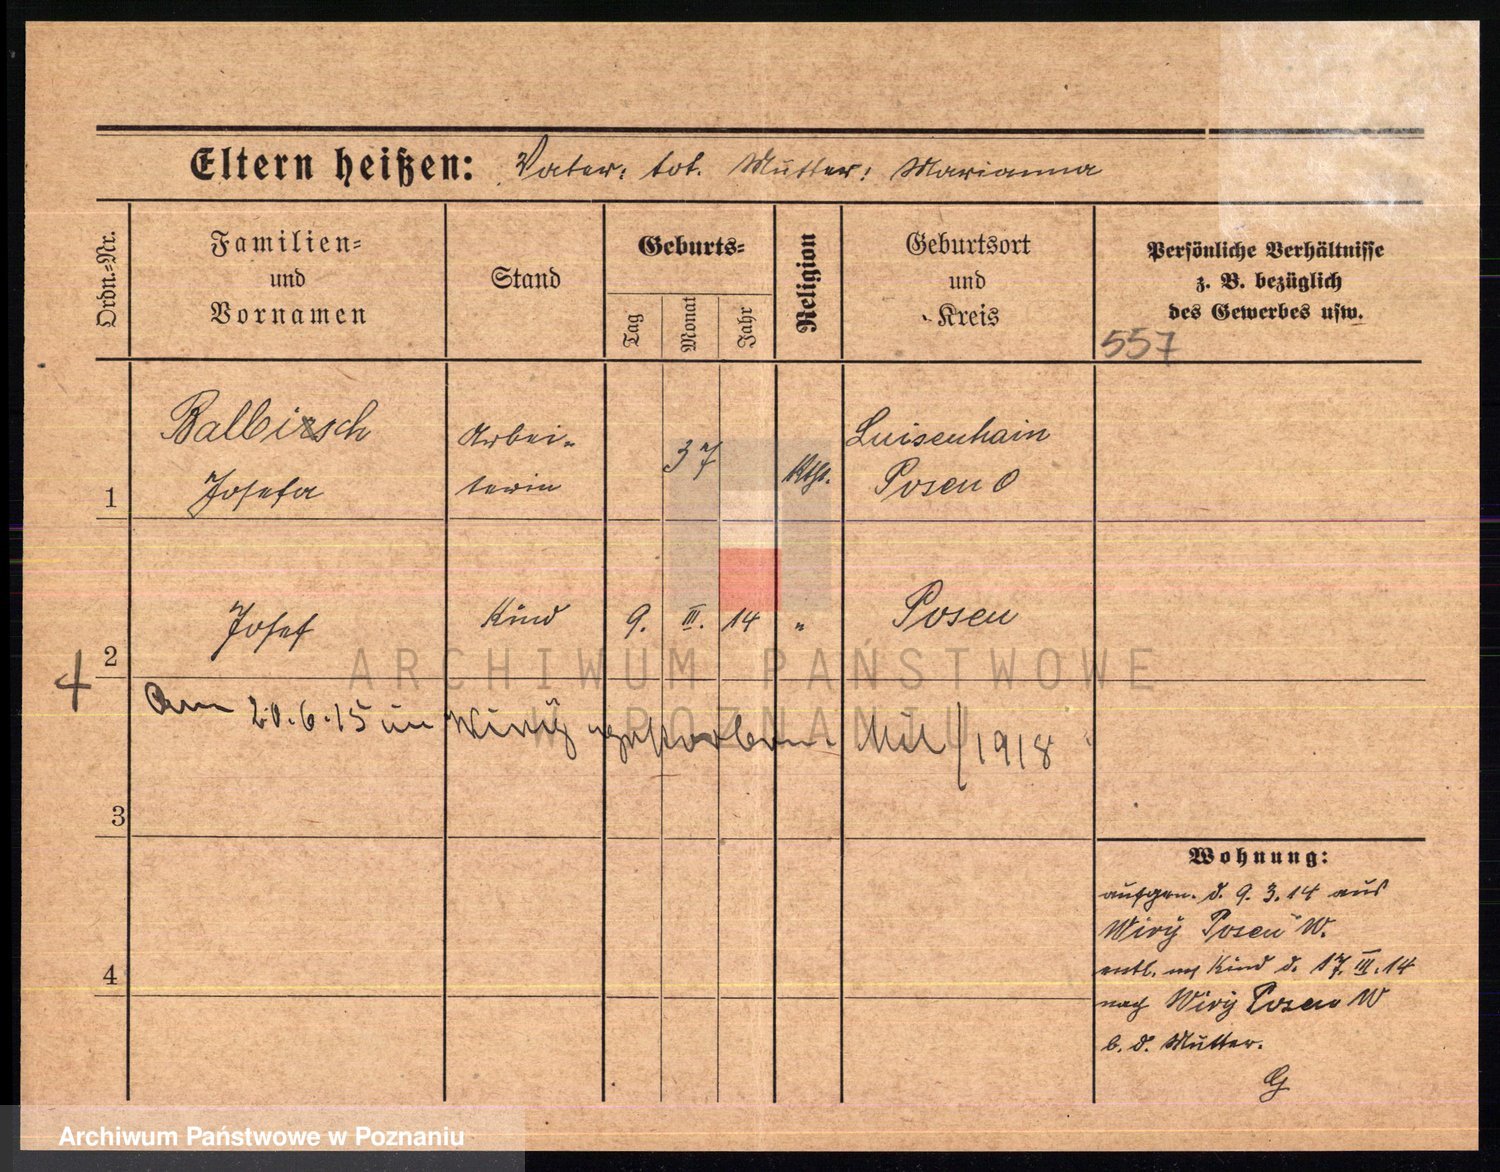 Eltern heißen: Vater: tot. Mutter: Marianna
Ordn.-Nr.
Familien-
und
Vornamen
Stand
Geburts-
Tag
Monat
Jahr
Religion
Geburtsort
und
Kreis
Persönliche Verhältnisse
z. B. bezüglich
des Gewerbes usw.
557
1
Balbirsch
Josefa
Arbei-
terin
37
Kth.
Luisenhain
Posen O
2
Josef
Kind
9. III. 14 "
Posen
Am 20.6.15 in Wiry gestorben. 1918
3
4
Wohnung:
aufgen. d. 9.3.14 aus
Wiry Posen W.
entl. m Kind d. 17. III. 14
nach Wiry Posen W
b. d. Mutter.
G
ARCHIWUM PAŃSTWOWE
W POZNANIU
Archiwum Państwowe w Poznaniu